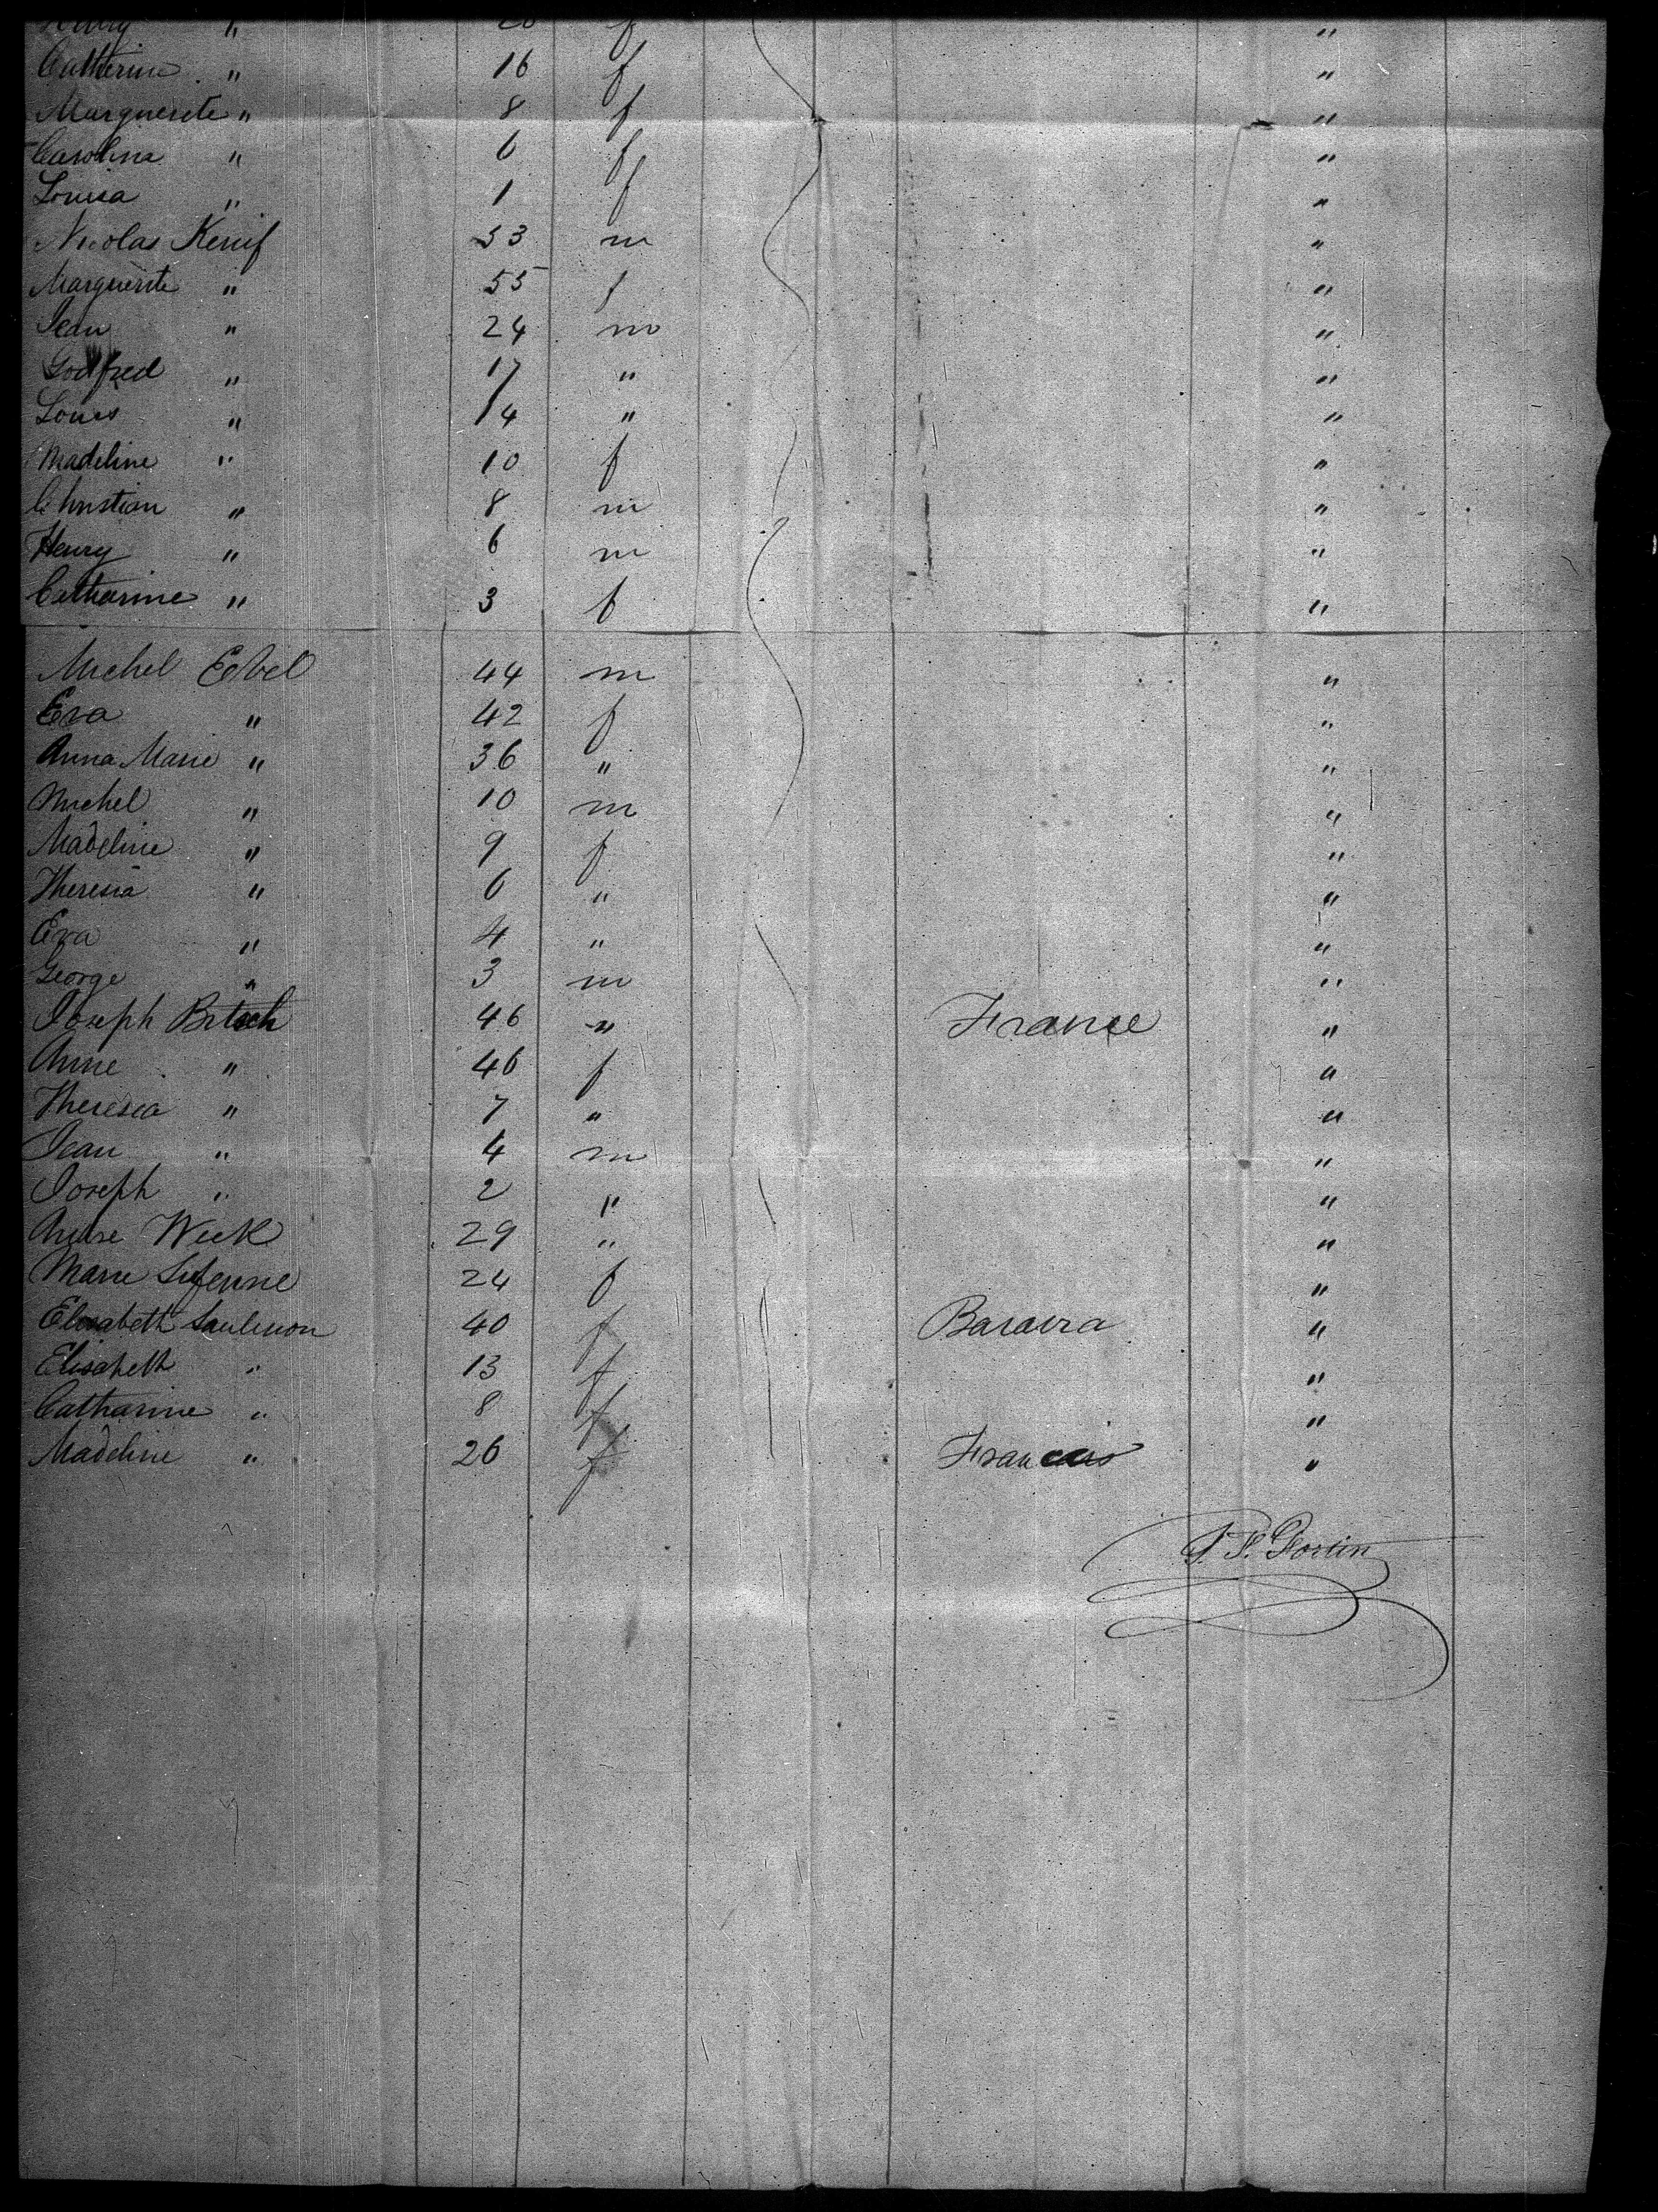 Henry " 20 f "
Catherine " 16 f "
Marguerete " 8 f "
Carolina " 6 f "
Louisa " 1 f "
Nicolas Kenif 53 m "
Marguerite " 55 f "
Jean " 24 m "
Godfred " 17 " "
Louis " 14 " "
Madeline " 10 f "
Christian " 8 m "
Henry " 6 m "
Catharine " 3 f "
Michel Ebel 44 m "
Eva " 42 f "
Anna Marie " 36 " "
Michel " 10 m "
Madeline " 9 f "
Theresia " 6 " "
Eva " 4 " "
George " 3 m "
Joseph Bitsch 46 " France "
Anne " 46 f "
Theresia " 7 " "
Jean " 4 m "
Joseph " 2 " "
Anne Week 29 " "
Marie 24 f "
Elisabeth Saulmon 40 f Bavaira "
Elisabeth " 13 f "
Catharine " 8 f "
Madeline " 26 f Francais "
P. F. Fortin